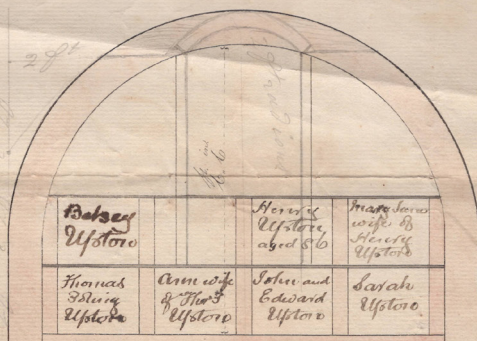 ft in
6.6
Betsey
Upton
Henry
Upton
aged 56
Mary Jane
wife of
Henry
Upton
Thomas
Upton
Ann wife
of Thos
Upton
John and
Edward
Upton
Sarah
Upton